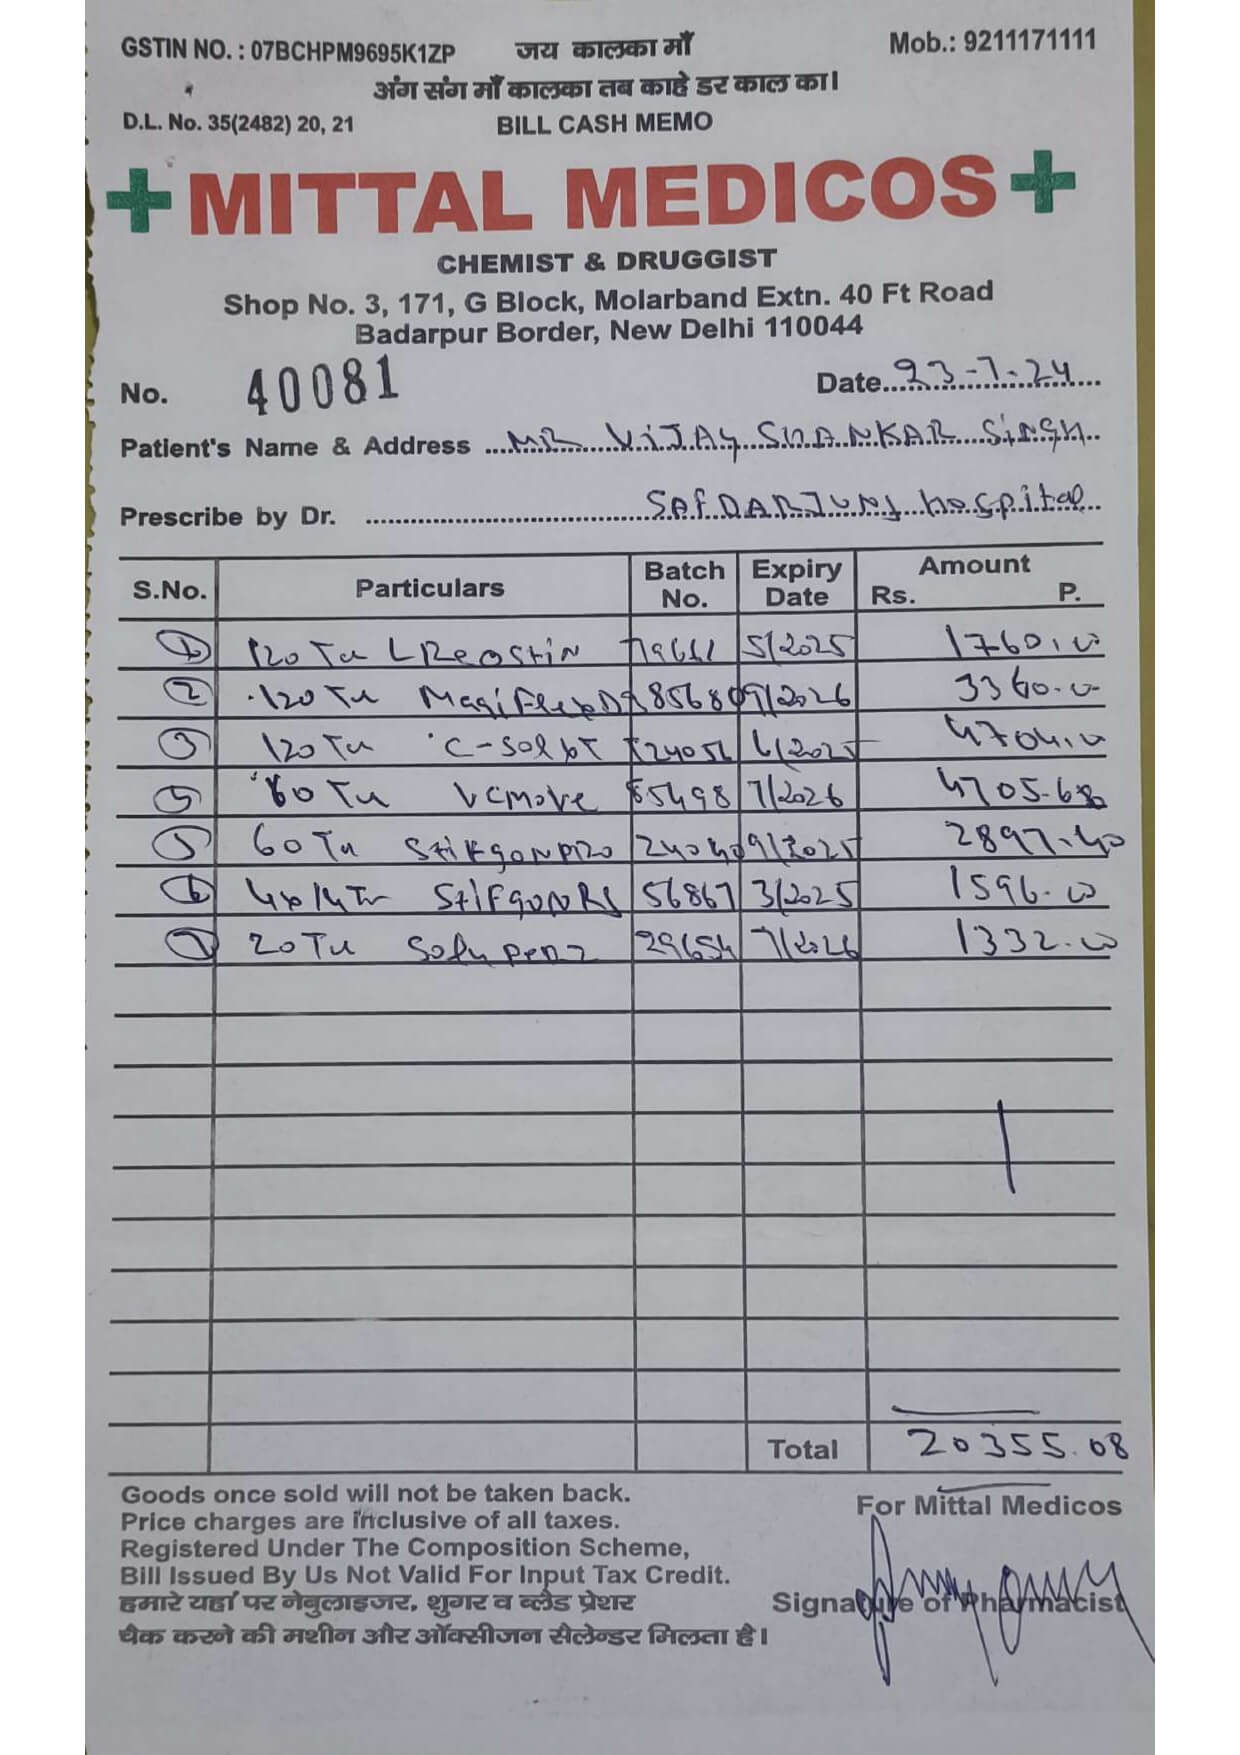 GSTIN NO. : 07BCHPM9695K1ZP जय कालका माँ Mob.: 9211171111
अंग संग माँ कालका तब काहे डर काल का।
D.L. No. 35(2482) 20, 21 BILL CASH MEMO
MITTAL MEDICOS
CHEMIST & DRUGGIST
Shop No. 3, 171, G Block, Molarband Extn. 40 Ft Road
Badarpur Border, New Delhi 110044
No. 40081 Date 23-7-24
Patient's Name & Address MR VIJAY SHANKAR SINGH
Prescribe by Dr. SAFDARJUNG hospital
S.No. Particulars Batch No. Expiry Date Amount Rs. P.
1 120 Tu 5/2025 1760.00
2 120 Tu 8568 9/2026 3360.00
3 120 Tu 24056 6/2025 4704.00
5 60 Tu VCMOVE 65498 7/2026 4705.68
5 60 Tu 24040 9/2025 2897.40
6 StifgonRS 56867 3/2025 1596.00
7 20 Tu 29654 7/2026 1332.00
Total 20355.08
Goods once sold will not be taken back.
Price charges are inclusive of all taxes.
For Mittal Medicos
Registered Under The Composition Scheme,
Bill Issued By Us Not Valid For Input Tax Credit.
हमारे यहां पर नेबुलाइजर, शुगर व ब्लैड प्रेशर
Signature of Pharmacist
चैक करने की मशीन और ऑक्सीजन सैलेन्डर मिलता है।